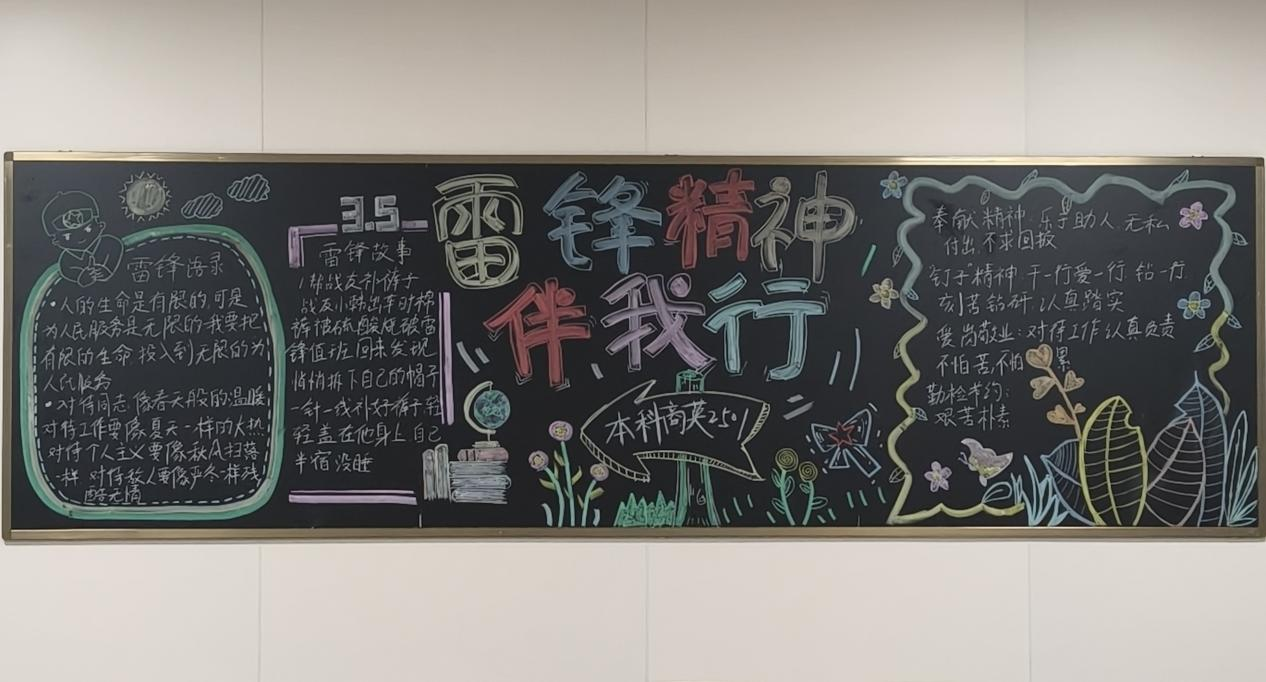 雷锋语录
·人的生命是有限的,可是
为人民服务是无限的我要把
有限的生命,投入到无限的为
人民服务
·对待同志像春天般的温暖
对待工作要像夏天一样的火热
对待个人主义要像秋风扫落
一样 对待敌人要像严冬一样残
酷无情
3.5
雷锋故事
1帮战友补裤子
战友小韩出车时棉
裤被硫酸烧破雷
锋值班回来发现
悄悄拆下自己的帽子
一针一线补好裤子轻
轻盖在他身上 自己
半宿没睡
雷锋精神
伴我行
本科高英2501
奉献精神:乐于助人,无私
付出,不求回报
钉子精神 干一行爱一行,钻一行
刻苦钻研,认真踏实
爱岗敬业:对待工作认真负责
不怕苦,不怕累
勤俭节约:
艰苦朴素